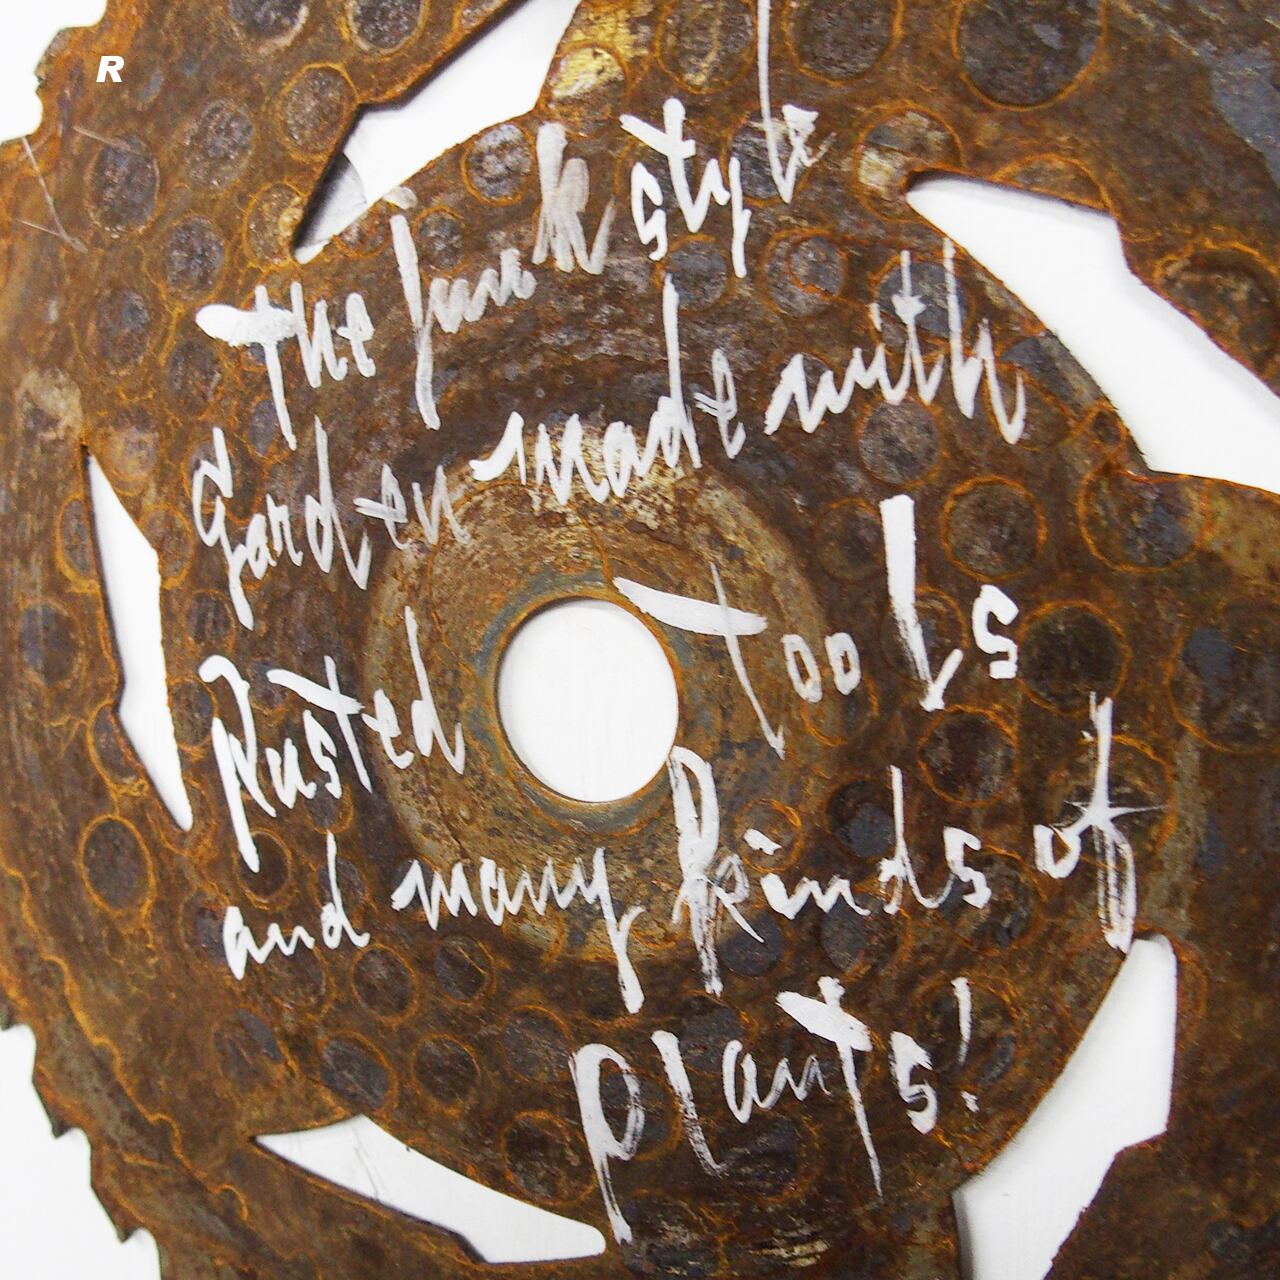 R
The junk style
Garden made with
Rusted TooLs
and many kinds of
plants!